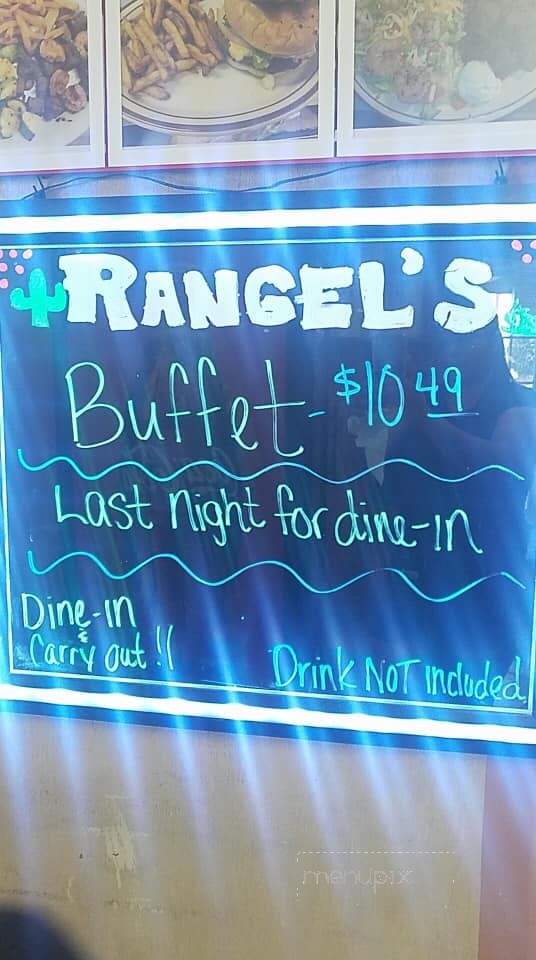 RANGEL'S
Buffet - $10 49
Last night for dine-in
Dine-in
& Carry out!!
Drink NOT included
menupix